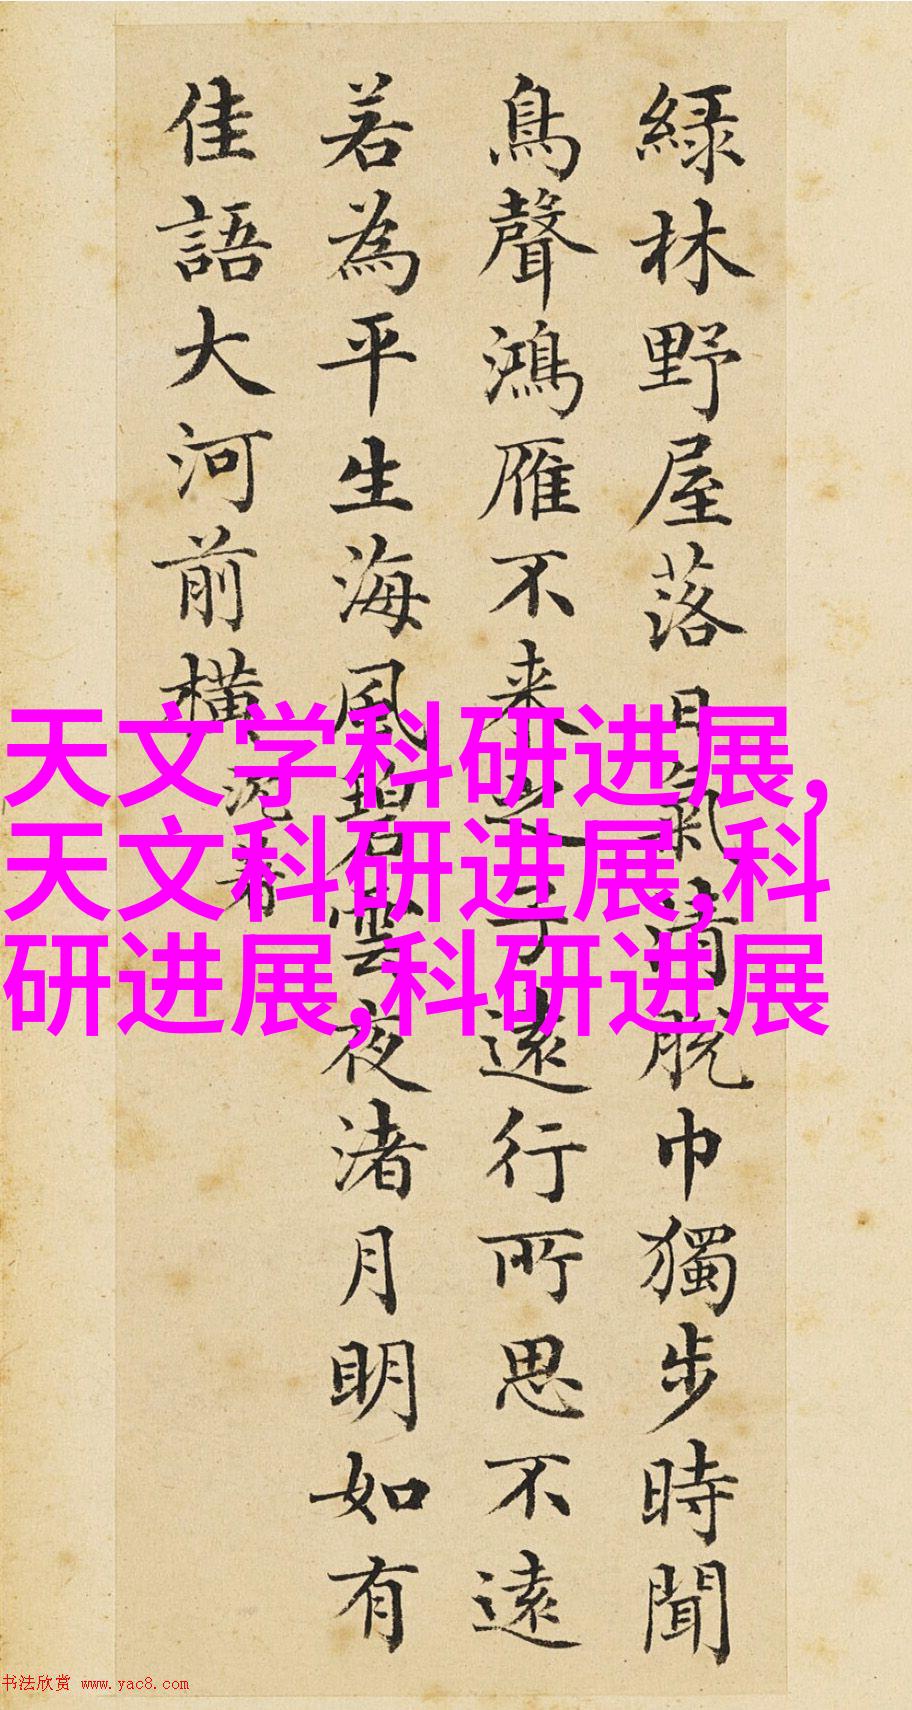 綠林野屋落日氣清脫巾獨步時聞
鳥聲鴻雁不来之子遠行所思不遠
若為平生海風碧雲夜渚月明如有
佳語大河前橫 沈尹
天文学科研进展,
天文科研进展,科
研进展,科研进展
书法欣赏 www.yac8.com